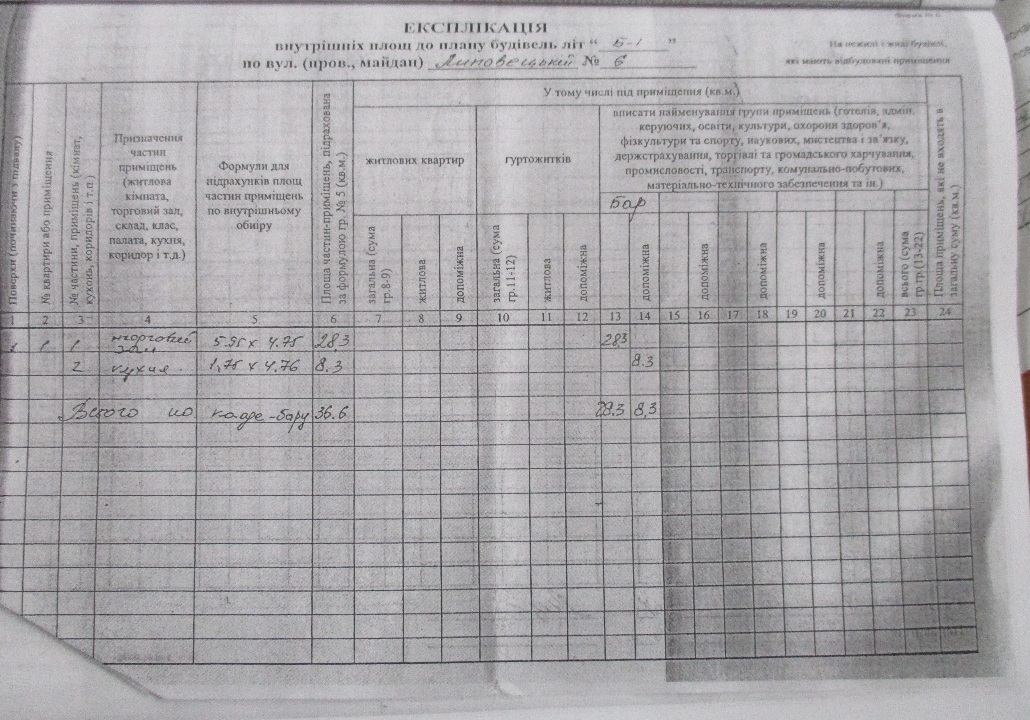 ЕКСПЛІКАЦІЯ
внутрішніх площ до плану будівель літ “ Б-1 ”
по вул. (пров., майдан) Липовецькій № 6
На нежилі і жилі будівлі,
які мають вбудовані приміщення
Поверхи (починаючи з підвалу)
№ квартири або приміщення
№ частини, приміщень (кімнат, кухонь, коридорів і т.п.)
Призначення
частин
приміщень
(житлова
кімната,
торговий зал,
склад, клас,
палата, кухня,
коридор і т.д.)
Формули для
підрахунків площ
частин приміщень
по внутрішньому
обміру
Площа частин-приміщень, підрахована
за формулою гр. № 5 (кв.м.)
У тому числі під приміщення (кв.м.)
житлових квартир
гуртожитків
вписати найменування групи приміщень (готелів, адмін.
керуючих, освіти, культури, охорони здоров'я,
фізкультури та спорту, наукових, мистецтва і зв'язку,
держстрахування, торгівлі та громадського харчування,
промисловості, транспорту, комунально-побутових,
матеріально-технічного забезпечення та ін.)
Бар
загальна (сума
гр.8-9)
житлова
допоміжна
загальна (сума
гр.11-12)
житлова
допоміжна
допоміжна
допоміжна
допоміжна
допоміжна
допоміжна
всього (сума
гр.гр.(13-22)
Площа приміщень, які не входять в
загальну суму (кв.м.)
1 2 3 4 5 6 7 8 9 10 11 12 13 14 15 16 17 18 19 20 21 22 23 24
1 1 1 торговий зал 5.95 х 4.75 28.3 28.3
2 кухня 1,75 х 4.76 8.3 8.3
Всього по кафе-бару 36.6 28.3 8,3